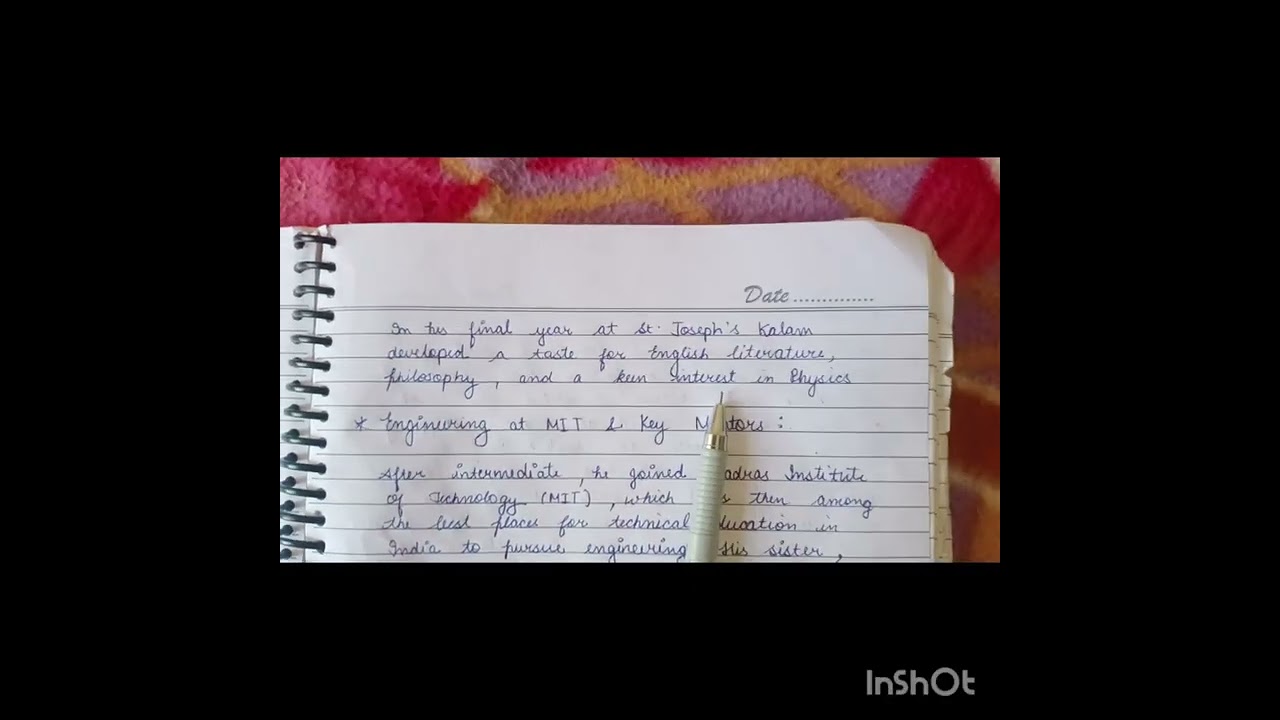 Date ..............
In his final year at St. Joseph's Kalam
developed a taste for English literature,
philosophy, and a keen interest in Physics
* Engineering at MIT & Key M tors :
After intermediate, he joined adras Institute
of Technology (MIT), which s then among
the best places for technical ducation in
India to pursue engineering His sister,
InShOt